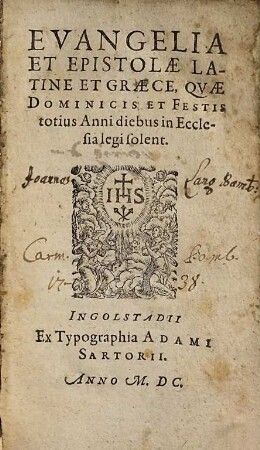 EVANGELIA
ET EPISTOLÆ LA-
TINE ET GRÆCE, QVÆ
DOMINICIS ET FESTIS
totius Anni diebus in Eccle-
sia legi solent.
Joannes
IHS
Carm.
INGOLSTADII
Ex Typographia ADAMI
SARTORII.
ANNO M. DC.